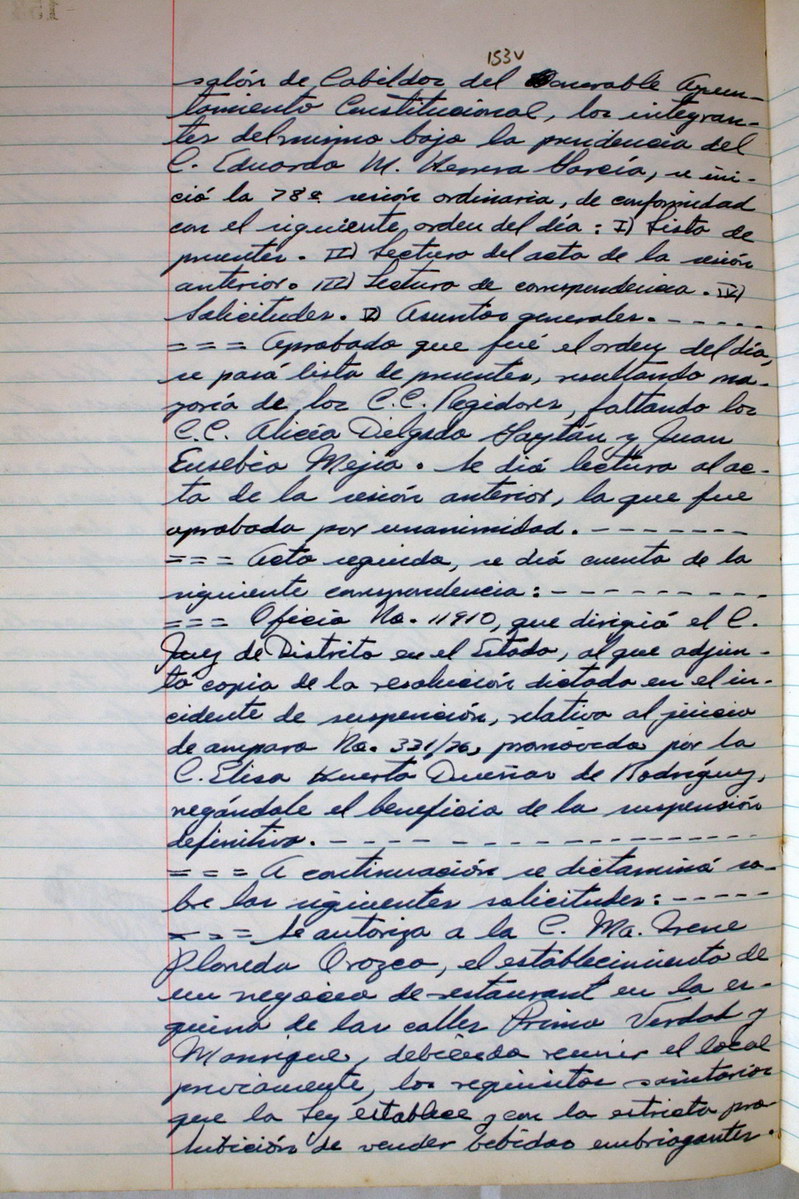 153v
salón de Cabildos del Honorable Ayun-
tamiento Constitucional, los integran-
tes del mismo bajo la presidencia del
C. Eduardo M. Herrera García, se ini-
ció la 78a sesión ordinaria, de conformidad
con el siguiente orden del día: I) Lista de
presentes. II) Lectura del acta de la sesión
anterior. III) Lectura de correspondencia. IV)
Solicitudes. V) Asuntos generales. - - - - -
= = = Aprobado que fué el orden del día,
se pasó lista de presentes, resultando ma-
yoría de los C.C. Regidores, faltando los
C.C. Alicia Delgado Gaytán y Juan
Eusebio Mejía. Se dió lectura al ac-
ta de la sesión anterior, la que fue
aprobada por unanimidad. - - - - - - -
= = = Acto seguido, se dió cuenta de la
siguiente correspondencia: - - - - - - - -
= = = Oficio No. 11910, que dirigió el C.
Juez de Distrito en el Estado, al que adjun-
tó copia de la resolución dictada en el in-
cidente de suspensión, relativo al juicio
de amparo No. 331/76, promovido por la
C. Elisa Huerta Dueñas de Rodríguez,
negándole el beneficio de la suspensión
definitiva. - - - - - - - - - - - - - - -
= = = A continuación se dictaminó so-
bre las siguientes solicitudes: - - - - -
= = = Se autoriza a la C. Ma. Irene
Ploneda Orozco, el establecimiento de
un negocio de restaurant en la es-
quina de las calles Primo Verdad y
Manrique, debiendo reunir el local
previamente, los requisitos sanitarios
que la Ley establece y con la estricta pro
hibición de vender bebidas embriagantes.